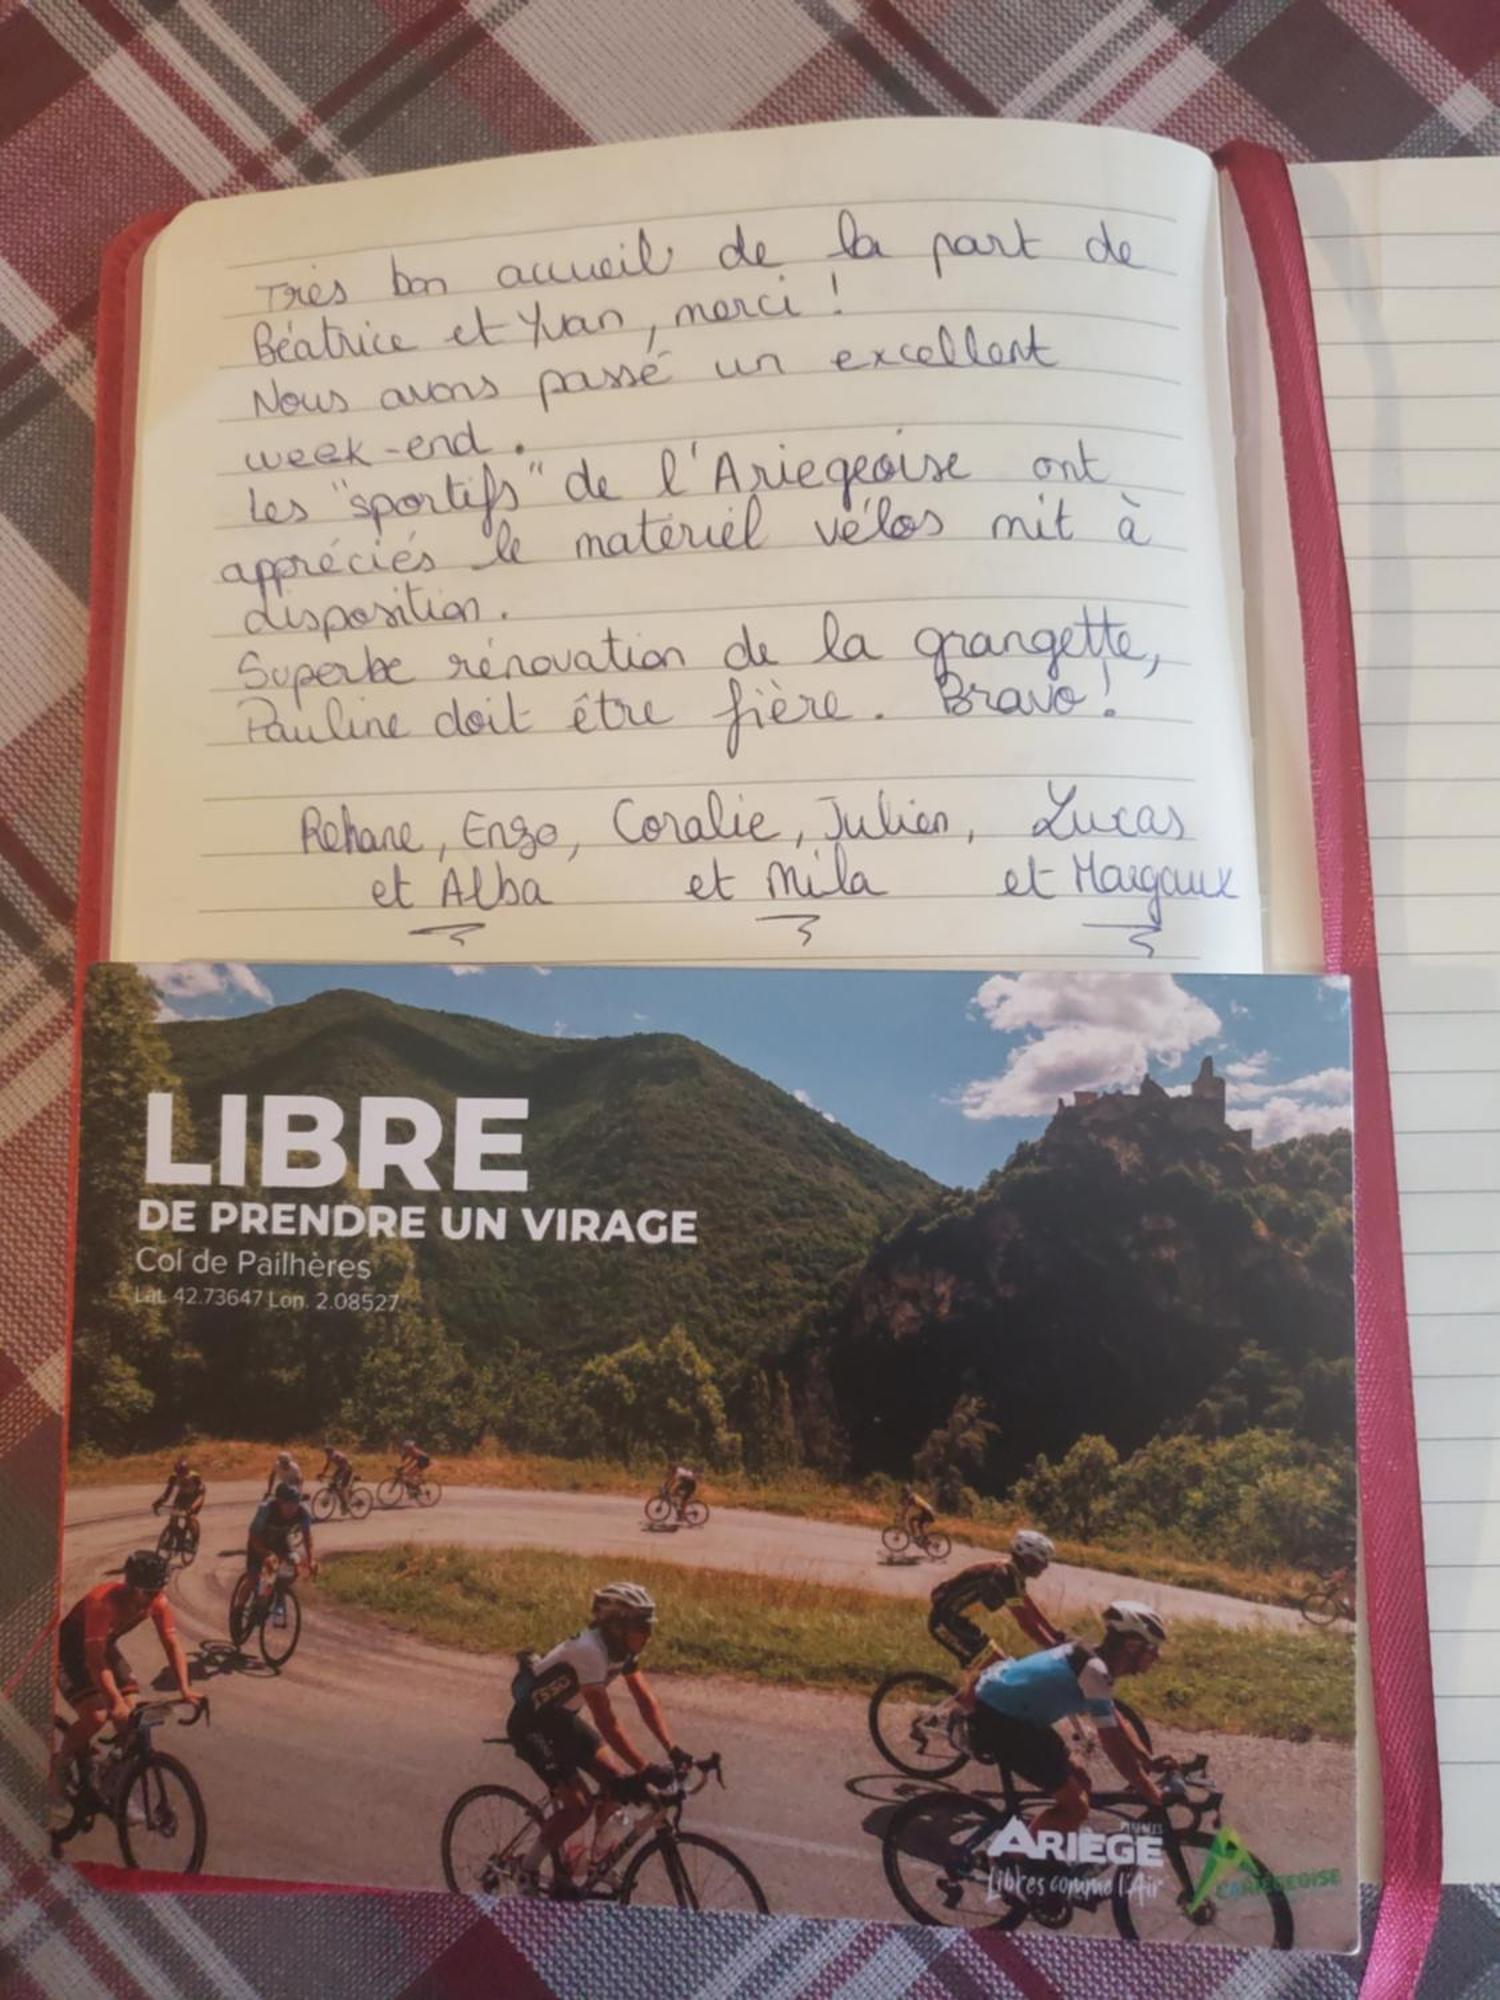 Très bon accueil de la part de
Béatrice et Yvan, merci !
Nous avons passé un excellent
week-end.
Les "sportifs" de l'Ariegeoise ont
appréciés le matériel vélos mit à
disposition.
Superbe rénovation de la grangette,
Pauline doit être fière. Bravo !
Rehane, Enzo, Coralie, Julien, Lucas
et Alba et Mila et Margaux
LIBRE
DE PRENDRE UN VIRAGE
Col de Pailhères
Lat. 42.73647 Lon. 2.08527
ARIÈGE
Libres comme l'Air
L'ARIÉGEOISE